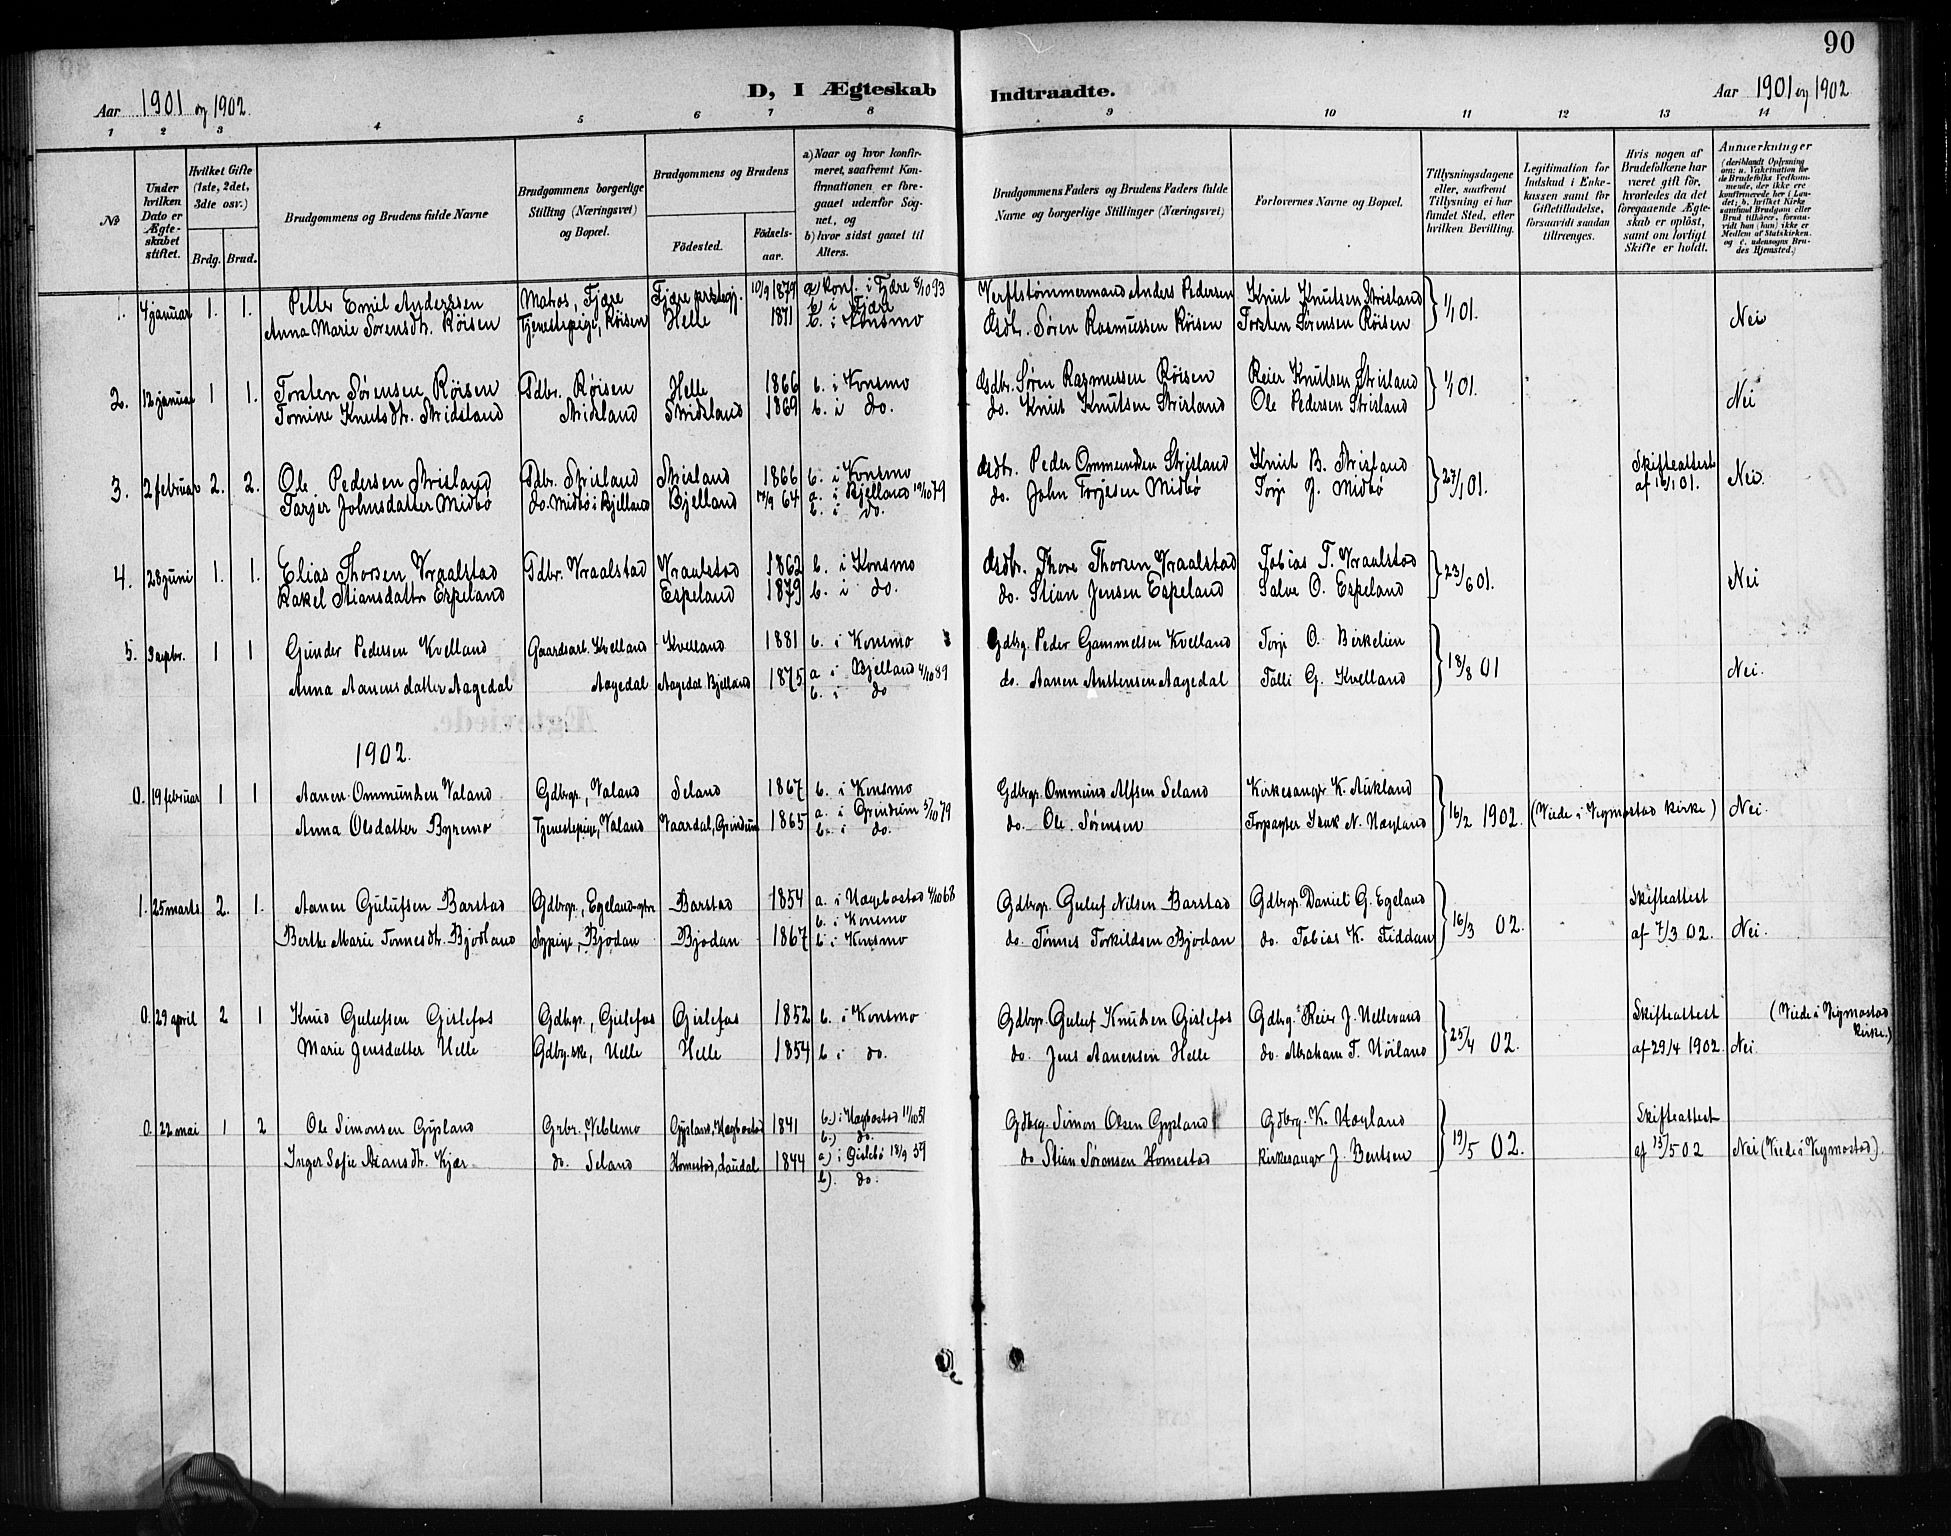 90
Aar 1901 og 1902.
D, I Ægteskab Indtraadte.
Aar 1901 og 1902
1 2 3 4 5 6 7 8 9 10 11 12 13 14
No
Under hvilken Dato er Ægteskabet stiftet.
Hvilket Gifte (1ste, 2det, 3die osv.)
Brdg. Brud.
Brudgommens og Brudens fulde Navne
Brudgommens borgerlige Stilling (Næringsvei) og Bopæl.
Brudgommens og Brudens
Födested.
Födselsaar.
a) Naar og hvor konfirmeret, saafremt Konfirmationen er foregaaet udenfor Sognet, og
b) hvor sidst gaaet til Alters.
Brudgommens Faders og Brudens Faders fulde Navne og borgerlige Stillinger (Næringsvei)
Forlovernes Navne og Bopæl.
Tillysningsdagene eller, saafremt Tillysning ei har fundet Sted, efter hvilken Bevilling.
Legitimation for Indskud i Enkekassen samt for Giftetilladelse, forsaavidt saadan tiltrænges.
Hvis nogen af Brudefolkene har været gift för, hvorledes da det foregaaende Ægteskab er oplöst, samt om lovligt Skifte er holdt.
Anmærkninger
(deriblandt Oplysning om: a. Vakcination for de Brudefolks Vedkommende, der ikke ere konfirmerede her i Landet; b. hvilket Kirkesamfund Brudgom eller Brud tilhörer, forsaavidt han (hun) ikke er Medlem af Statskirken, og c. udensogns Brudes Hjemsted.)
1. 4 januar 1. 1. Peter Emil Anderssen Matros, Fjære Fjære prestegj. 10/9 1879 a konf. i Fjære 8/10 93 Verftstømmermand Anders Pedersen Knut Knutsen Strisland 1/1 01.
b i Fjære
Anna Marie Sørensdtr. Röisen Tjenestepige, Röisen Helle 1871 b. i Konsmo Gsdbr. Søren Rasmussen Röisen Torsten Sørensen Röisen Nei
2. 12 januar 1 1. Torsten Sørensen Röisen Gdbr. Röisen Helle 1866 b. i Konsmo Gsdbr. Søren Rasmussen Röisen Reier Knutsen Strisland 1/1 01.
Tomine Knutsdtr. Stridsland Strisland Stridsland 1869 b. i do. do. Knut Knutsen Strisland Ole Pedersen Strisland Nei
3. 2 februar 2. 2. Ole Pedersen Strisland Gdbr. Strisland Strisland 1866 b. i Konsmo Gsdbr. Peder Ommundsen Strisland Knut B. Strisland 27/1 01. Skifteattest af 16/1 01. Nei.
Tarjer Johnsdatter Midbö do. Midbö i Bjelland Bjelland 17/9 64 a. i Bjelland 19/10 79 do. John Torjesen Midbö Torje J. Midbö
b. i do.
4. 28 juni 1. 1. Elias Thorsen Vraalstad Gdbr. Vraalstad Vraalstad 1862 b. i Konsmo Gsdbr. Thore Thorsen Vraalstad Tobias T. Vraalstad 23/6 01.
Rakel Stiansdatter Espeland Espeland 1879 b. i do. do. Stian Jensen Espeland Salve O. Espeland Nei
5. 1 1 Gunder Pedersen Kvelland Gaardsarb. Kvelland Kvelland 1881 b. i Konsmo Gdbrg. Peder Gammelsen Kvelland Torje O. Birkelien 18/8 01
Anna Aanensdatter Aagedal Aagedal Aagedal Bjelland 1875 a i Bjelland 4/10 89 do. Aanen Austensen Aagedal Tålli G. Kvelland Nei.
b. i do
1902.
0. 19 februar 1 1 Aanen Ommundsen Valand Gdbrgr., Valand Seland 1867 b. i Konsmo Gdbrgr. Ommund Alfsen Seland Kirkesanger K. Aukland
Anna Olsdatter Byremo Tjenestepige, Valand Vaardal, Grindum 1865 a. i Grindum 5/10 79 do. Ole Sørensen Isak N. Høyland 16/2 1902. (Viede i Vigmostad kirke) Nei.
b. i do.
1. 25 marts. 2. 1. Aanen Gulufsen Barstad Gdbrgr., Egeland Barstad 1854 a. i Hægebostad 4/10 68 Gdbrgr. Guluf Nilsen Barstad Gdbrgr. Daniel G. Egeland 16/3 02. Skifteattest
b. i Konsmo
Berthe Marie Tønnesdtr. Bjodland Bjodan Bjodan 1867 b. i Konsmo do. Tønnes Torkildsen Bjodan do. Tobias K. Fiddan af 7/3 02. Nei.
0. 29 april 2 1 Knud Gulufsen Gislefos Gdbrgr., Gislefos Gislefos 1852 b. i Konsmo Gdbrgr. Guluf Knudsen Gislefos Gdbrg. Reier J. Hellevand 25/4 02. Skifteattest (Viede i Vigmostad kirke.)
Marie Jensdatter Helle Gdbg.ske, Helle Helle 1854 b i do. do. Jens Aanensen Helle do. Abraham T. Höiland af 29/4 1902. Nei
0. 22 mai 1 2 Ole Simonsen Gysland Grbr., Veblemo Gysland, Hægbostad 1841 b.) i Hægbostad 11/10 51 Gdbrg. Simon Olsen Gysland Gdbrg. K. Høyland 19/5 02. Skifteattest
b.) do.
Inger Sofie Stiansdtr. Kjær do. Seland Homestad, Laudal 1844 a) i Øislebö 18/9 59 do Stian Sørensen Homestad Kirkesanger J. Bentsen af 13/5 02 Nei (Viede i Vigmostad).
b). do.